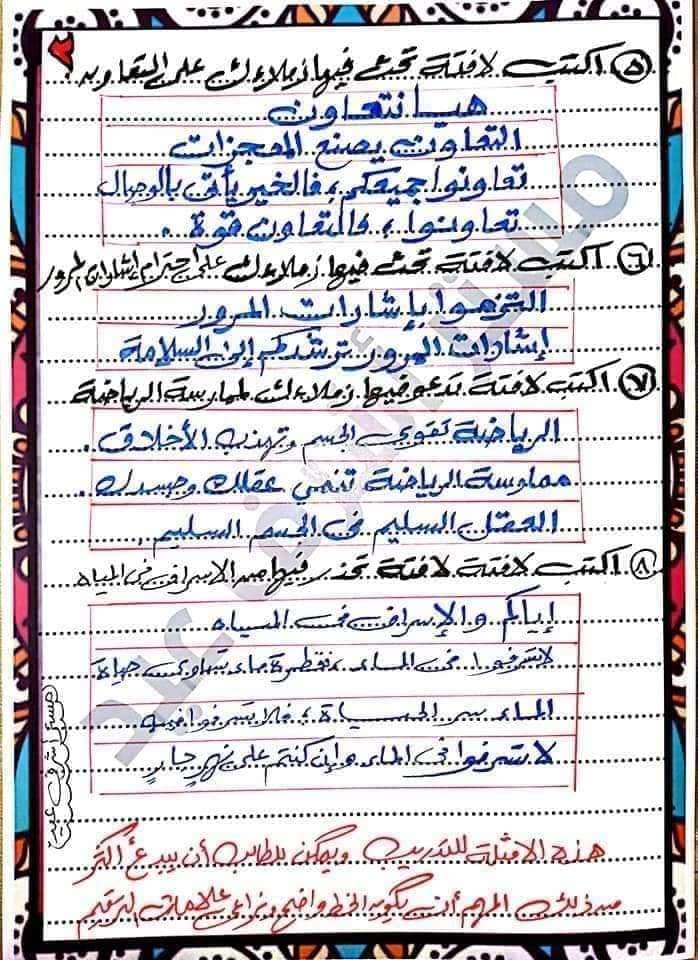 ٢
٥ اكتب لافتة تحث فيها زملاءك على التعاون.
هيا نتعاون
التعاون يصنع المعجزات
تعاونوا جميعكم، فالخير يأتى بالوصال
تعاونوا، فالتعاون قوة.
٦ اكتب لافتة تحث فيها زملاءك على احترام إشارات المرور
التزموا بإشارات المرور
إشارات المرور ترشدكم إلى السلامة
٧ اكتب لافتة تدعو فيها زملاءك لممارسة الرياضة
الرياضة تقوى الجسم وتهذب الأخلاق.
ممارسة الرياضة تنمي عقلك وجسدك.
العقل السليم فى الجسم السليم.
٨ اكتب لافتة لافتة تحذر فيها من الاسراف فى المياه
إياكم والإسراف فى المياه
لا تسرفوا فى الماء، فقطرة ماء تساوى حياة
الماء سر الحياة، فلا تسرفوا فيه
لا تسرفوا فى الماء وإن كنتم على نهر جارٍ
هذه الامثلة للتدريب ويمكن للطالب أن يبدع أكثر
من ذلك المهم أن يكون الخط واضح ونراعى علامات الترقيم
مستر أشرف عيد
مستر أشرف عيد